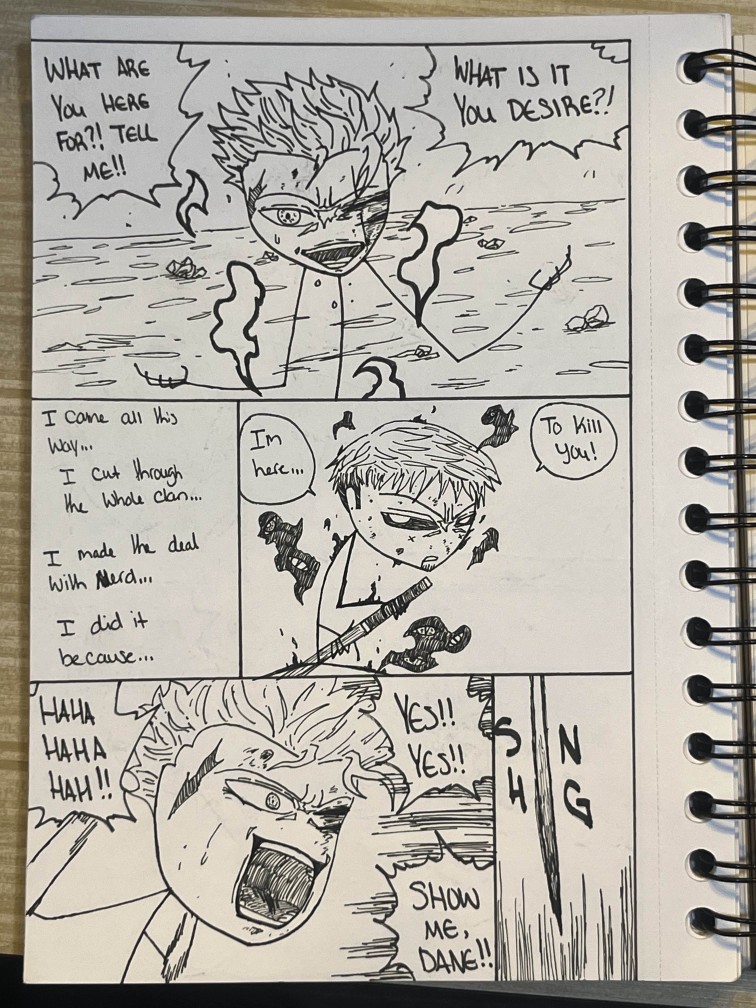 WHAT ARE
YOU HERE
FOR?! TELL
ME!!
WHAT IS IT
YOU DESIRE?!
I came all this
way...
I cut through
the whole clan...
I made the deal
with Nerd...
I did it
because...
Im
here...
To kill
you!
HAHA
HAHA
HAH!!
YES!!
YES!!
SHOW
ME,
DANE!!
SHNG